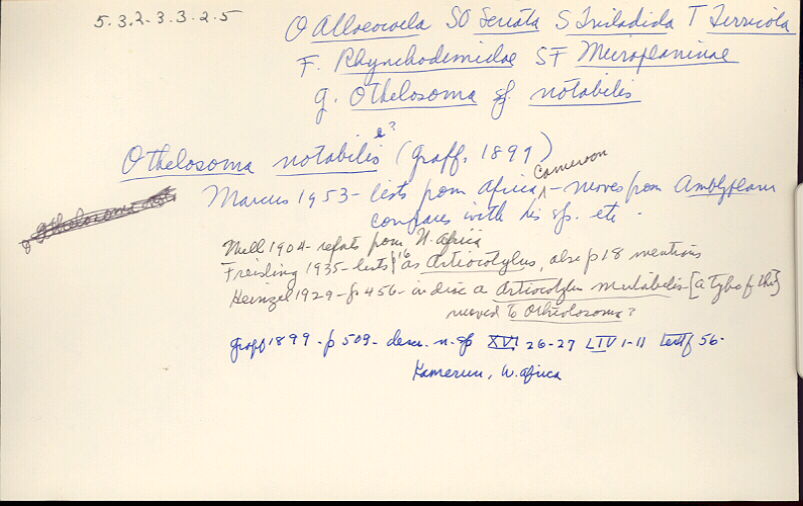 5.3.2-3.3.2.5
O Alloeocoela SO Seriata S Tricladida T Terricola
F. Rhynchodemidae SF Microplaninae
g. Othelosoma sp. notabilis
e?
Othelosoma notabilis (Graff, 1899)
Cameroon
Marcus 1953 - lists from Africa ^ - moves from Amblyplana
compares with his sp. etc.
Mell 1904 - refots from W. Africa
Freisling 1935 - lists p16 as Artiocotylus, also p18 mentions
Heinzel 1929 - p456 - in disc a Artiocotylus mutabilis [a typo of this]
moved to Othelosoma?
Graff 1899 - p 509 - descr. n. sp XVI 26-27 LIV 1-11 textf 56.
Kamerun, W. Africa